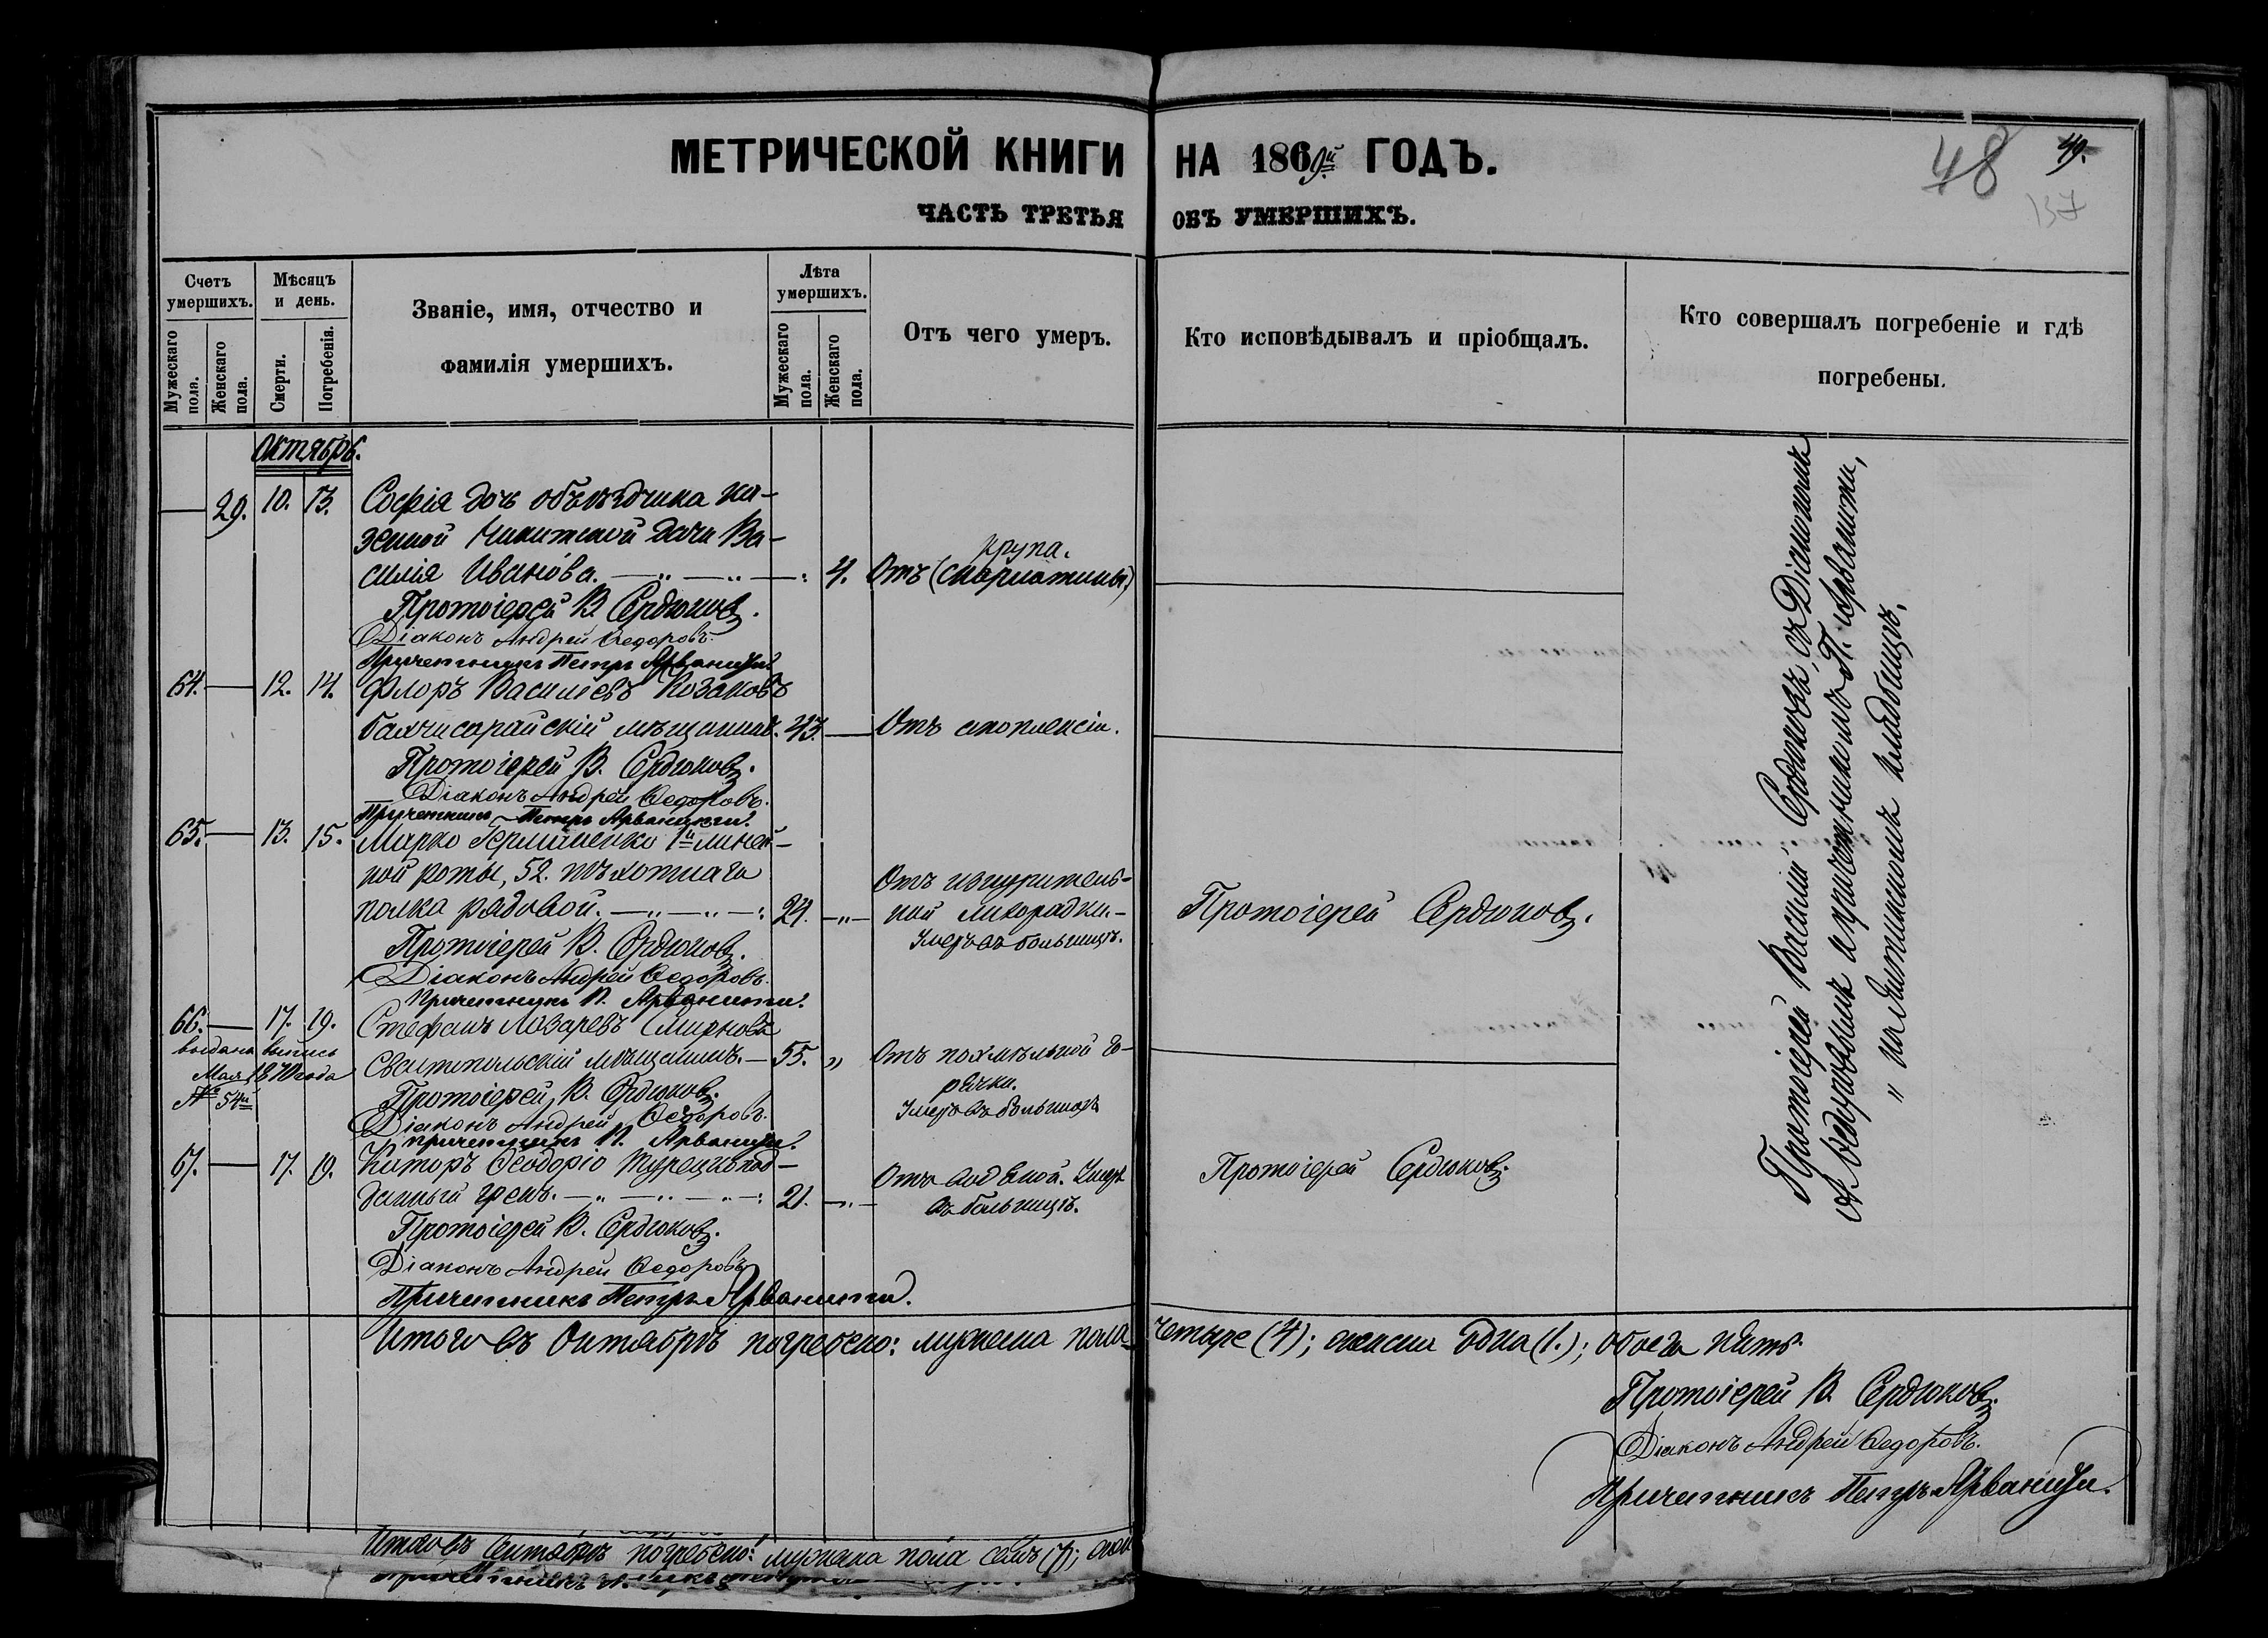 МЕТРИЧЕСКОЙ КНИГИ НА 1869й ГОДЪ.
48
49.
137
ЧАСТЬ ТРЕТЬЯ ОБЪ УМЕРШИХЪ.
Счетъ умершихъ.
Мужескаго пола.
Женскаго пола.
Мѣсяцъ и день.
Смерти.
Погребенія.
Званіе, имя, отчество и
фамилія умершихъ.
Лѣта умершихъ.
Мужескаго пола.
Женскаго пола.
Отъ чего умеръ.
Кто исповѣдывалъ и пріобщалъ.
Кто совершалъ погребеніе и гдѣ
погребены.
Октябрь.
— 29. 10. 13. Софія дочь объѣздчика ка-
зенной Никитской дачи Ва-
крупа.
силія Иванова. 4. Отъ (скарлатины)
Протоіерей В. Сердюковъ.
Діаконъ Андрей Ѳедоровъ.
Причетникъ Петръ Арванити.
64. — 12. 14. Флоръ Васильевъ Козаковъ
бахчисарайскій мѣщанинъ. 43. — Отъ апоплексіи.
Протоіерей В. Сердюковъ.
Діаконъ Андрей Ѳедоровъ.
Причетникъ Петръ Арванити.
65. — 13. 15. Марко 1й линей-
ной роты, 52. пѣхотнаго
Отъ изнуритель-
полка рядовой. 24. —„— ной лихорадки- Протоіерей Сердюковъ.
Умеръ въ больницѣ.
Протоіерей В. Сердюковъ.
Діаконъ Андрей Ѳедоровъ.
Причетникъ П. Арванити.
66. — 17. 19. Стефанъ Лазаревъ Смирновъ
выдана выпись
Мая 1870 года
№ 54й
Севастопольскій мѣщанинъ.— 55. „ Отъ похмѣльной го-
рячки.
Умеръ въ больницѣ
Протоіерей В. Сердюковъ.
Діаконъ Андрей Ѳедоровъ.
Причетникъ П. Арванити.
67. — 17. 19. Ѳеодоріо Турецко под-
данный грекъ. 21. —„— Отъ водяной. Умеръ
въ больницѣ.
Протоіерей Сердюковъ.
Протоіерей В. Сердюковъ.
Діаконъ Андрей Ѳедоровъ
Причетникъ Петръ Арванити.
Протоіерей Василій Сердюковъ, съ Діакономъ
А. Ѳедоровымъ и причетникомъ П. Арванити,
„ на Ялтинскомъ кладбищѣ.
Итого въ Октябрѣ погребено: мужеска пола четыре (4); женска одна (1.); обоего пять.
Протоіерей В. Сердюковъ.
Діаконъ Андрей Ѳедоровъ.
Причетникъ Петръ Арванити.
Итого въ Сентябрѣ погребено: мужеска пола семь (7);